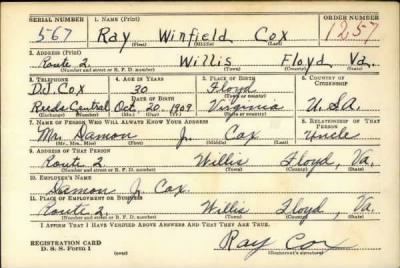 SERIAL NUMBER 1. NAME (Print) ORDER NUMBER
567 Ray Winfield Cox 1257
(First) (Middle) (Last)
2. ADDRESS (Print)
Route 2. Willis Floyd Va.
(Number and street or R. F. D. number) (Town) (County) (State)
3. TELEPHONE 4. AGE IN YEARS 5. PLACE OF BIRTH 6. COUNTRY OF CITIZENSHIP
D.J. Cox 30 Floyd
DATE OF BIRTH (Town or county)
Reeds Central Oct. 20. 1909 Virginia U.S.A.
(Exchange) (Number) (Mo.) (Day) (Yr.) (State or country)
7. NAME OF PERSON WHO WILL ALWAYS KNOW YOUR ADDRESS 8. RELATIONSHIP OF THAT PERSON
Mr. Damon J. Cox Uncle
(Mr., Mrs., Miss) (First) (Middle) (Last)
9. ADDRESS OF THAT PERSON
Route 2 Willis Floyd, Va.
(Number and street or R. F. D. number) (Town) (County) (State)
10. EMPLOYER'S NAME
Damon J. Cox.
11. PLACE OF EMPLOYMENT OR BUSINESS
Route 2. Willis Floyd, Va.
(Number and street or R. F. D. number) (Town) (County) (State)
I AFFIRM THAT I HAVE VERIFIED ABOVE ANSWERS AND THAT THEY ARE TRUE.
REGISTRATION CARD
D. S. S. Form 1 (over) Ray Cox
(Registrant's signature)